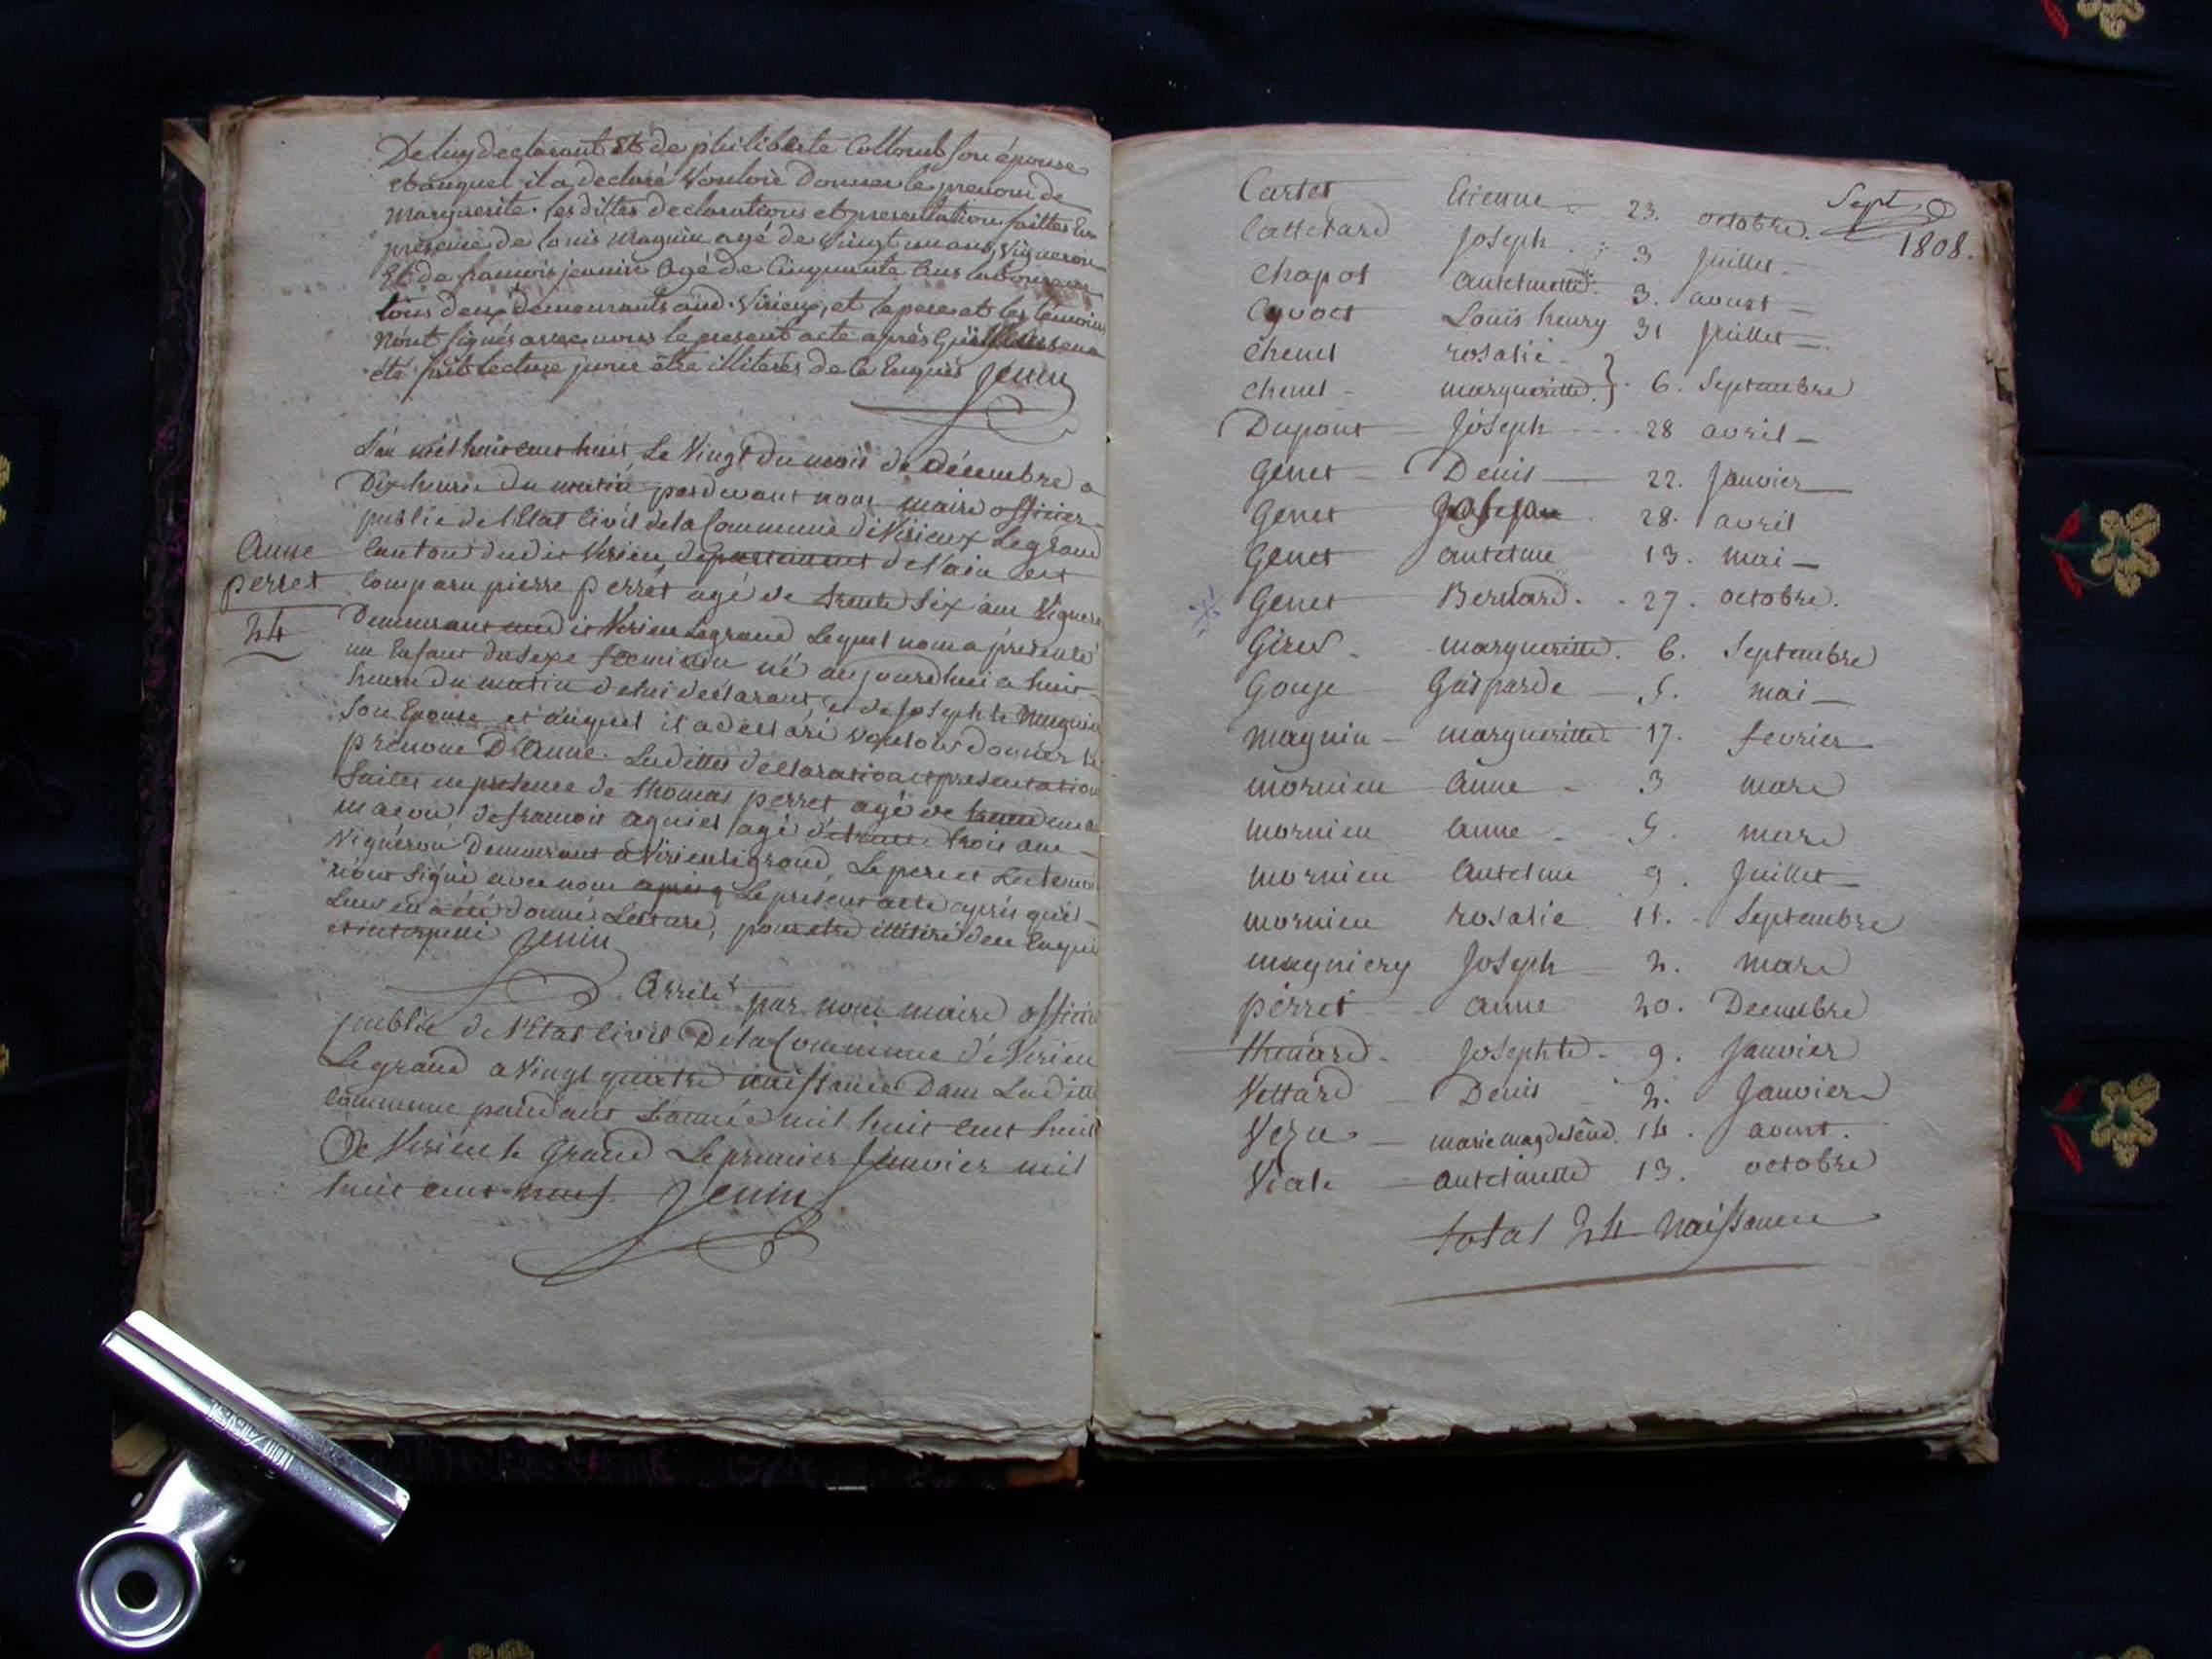 De luy declarant et de philiberte Collomb son épouse
et auquel il a declaré Vouloir Donner le prenom de
Marguerite. les dittes declarations et presentation faittes En
presence de louis magnin agé de Vingt un ans, Vigneron
Et de francois jeanin agé de Cinquante Ans laboureur
tous deux demeurants aud. Virieu, et le pere et les temoins
N'ont signés avec nous le present acte après qu'il leur en a
été fait lecture pour être illiterés de ce Enquis Jenin
L'an mil huit cent huit Le Vingt du mois de décembre a
Dix heures du matin pardevant nous maire officier
public de l'Etat Civil de la Commune de Virieux Legrand
Canton dudit Virieu, departement de l'ain est
Comparu pierre perret agé de trente six ans Vigneron
Demeurant audit Virieu Legrand Lequel nous a présenté
un Enfant du sexe feminin né aujourdhui a huit
heures du matin de lui declarant, et de Josephte Magnin
son Epouse et auquel il a declaré vouloir donner le
prénom D'Anne. Lesdittes declaration et presentation
faites en presence de thomas perret agé de
macon de francois agniel agé de trente trois ans
Vigneron Demeurant a Virieulegrand, Le pere et Les temoins
n'ont signé avec nous Le present acte après qu'il
Leur en a été donné Lecture, pour etre illitiré de ce Enquis
et interpellé Jenin
Anne
perret
24
Arrêté par nous maire officier
public de l'Etat Civil De la Commune de Virieu
Legrand a Vingt quatre naissance Dans Laditte
Commune pendant L'année mil huit cent huit
De Virieu le Grand Le premier Janvier mil
huit cent neuf. Jenin
Sept
1808.
Cartet Etienne 23. octobre.
Cattetard Joseph 3 Juillet
Chapot antelmette 3. aoust
Cyvoct Louis henry 31 Juillet
Chenet rosalie
Chenet margueritte } 6. Septembre
Dupont Joseph 28 avril
Genet Denis 22. Janvier
Genet Josephe 28. avril
Genet antelme 13. mai
Genet Bernard. 27. octobre.
Giref margueritte. 6. Septembre
Gouje Gasparde 5. mai
Magnin margueritte 17. fevrier
mornieu anne 3 mars
mornieu anne 5. mars
mornieu antelme 9. Juillet
mornieu rosalie 11. Septembre
magniery Joseph 2. mars
perret anne 20. Decembre
thenard Josephte 9. Janvier
Vettard Denis 2. Janvier
Vezu marie magdelêne. 14. aoust.
Viale antelmette 13. octobre
total 24 naissance